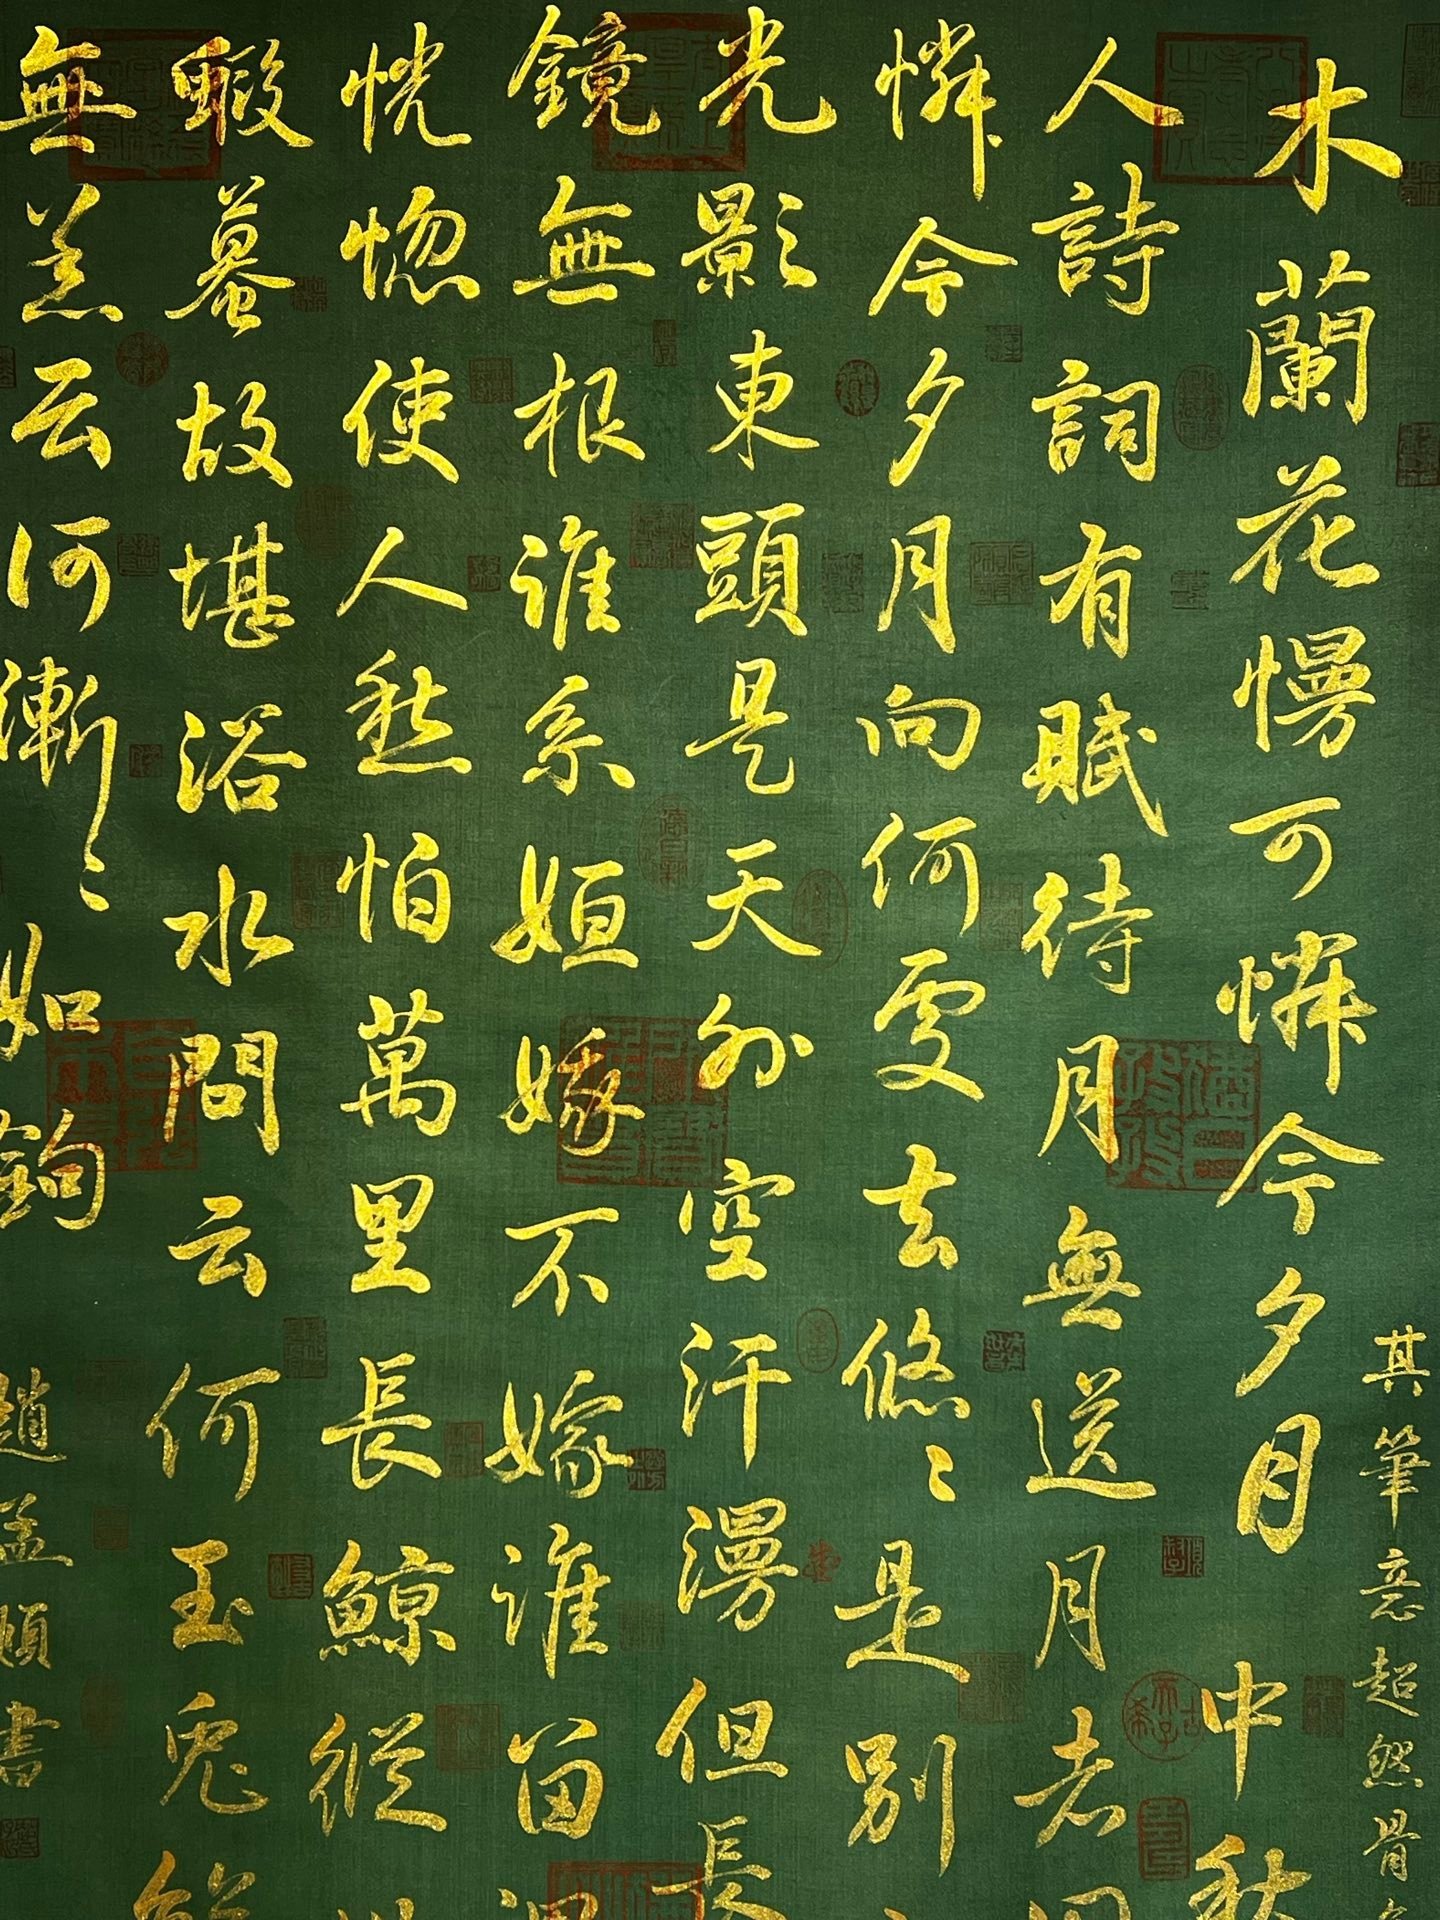 其筆意超然骨
木蘭花慢可憐今夕月 中秋
人詩詞有賦待月無送月者
憐今夕月向何處去悠〻是別
光影東頭是天外空汗漫但長
鏡無根誰系姮嫦不嫁誰留
恍惚使人愁怕萬里長鯨縱
蝦蟇故堪浴水問云何玉兔
無恙云何漸〻如鉤
趙孟頫書